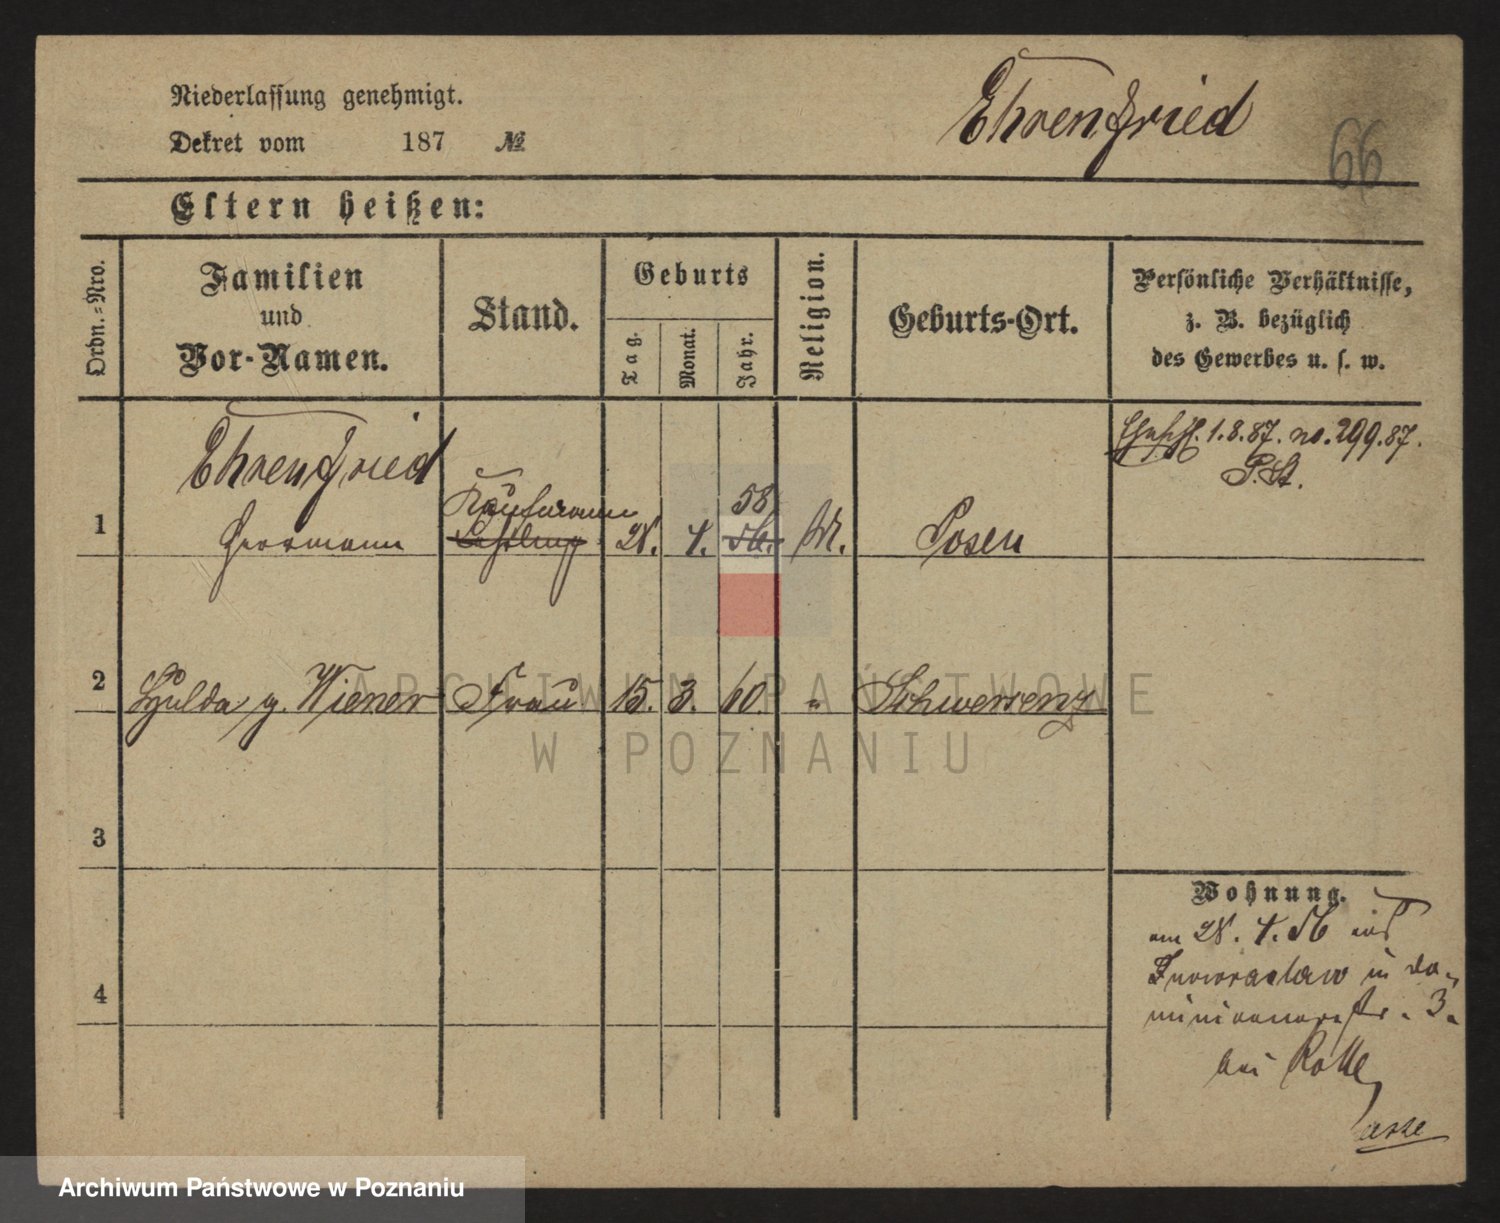 Niederlassung genehmigt.
Ehrenfried
66
Dekret vom 187 №
Eltern heißen:
Ordn.-Nro.
Familien
und
Vor-Namen.
Stand.
Geburts
Tag.
Monat.
Jahr.
Religion.
Geburts-Ort.
Persönliche Verhältnisse,
z. B. bezüglich
des Gewerbes u. s. w.
1.8.87. no. 299.87.
P. St.
Ehrenfried
Kaufmann
58
1 Herrmann Lehrling 4. 56. M. Posen
2 Hulda g. Wiener Frau 15. 3. 60. " Schwersenz
3
4
Wohnung.
am 4. 56 aus
Inowraclaw in Do-
minicanerstr. 3.
bei
ARCHIWUM PAŃSTWOWE
W POZNANIU
Archiwum Państwowe w Poznaniu